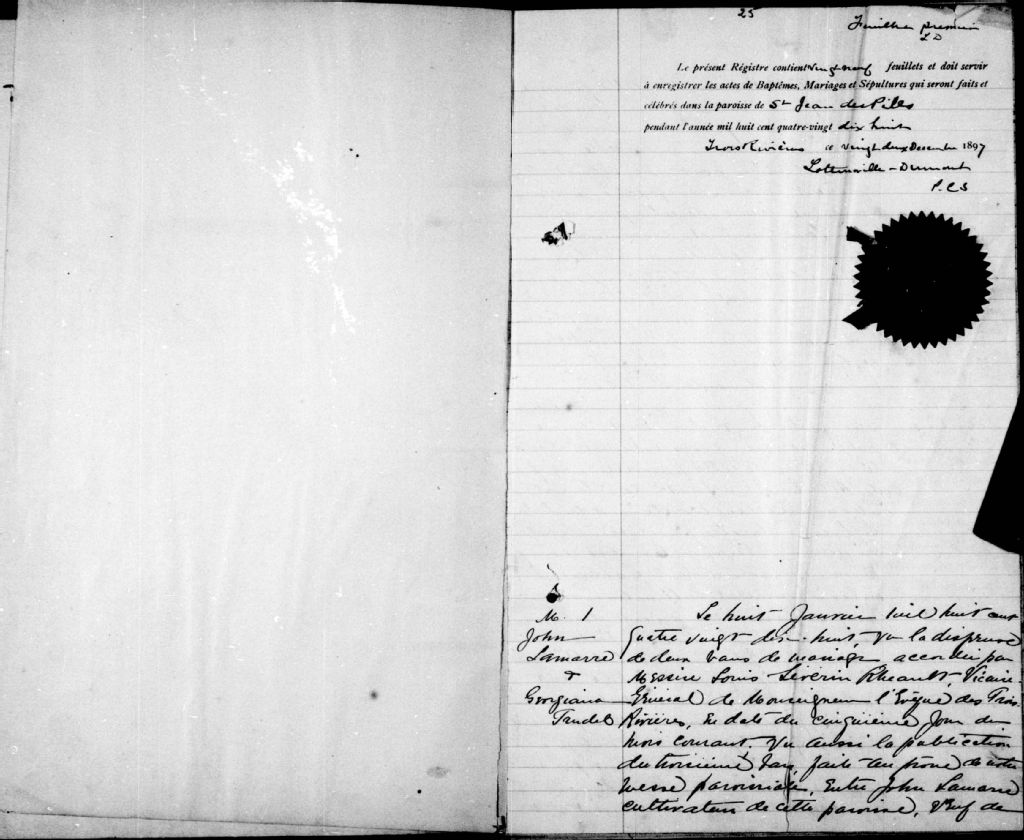 25
Feuillet premier
L D
Le présent Régistre contient vingt neuf feuillets et doit servir
à enregistrer les actes de Baptêmes, Mariages et Sépultures qui seront faits et
célébrés dans la paroisse de St Jean des Piles
pendant l'année mil huit cent quatre-vingt dix huit
Trois Rivières ce vingt deux Decembre 1897
Lottinville - Dumont
P. C S
M. 1
John
Lamarre
&
Georgiana
Trudel
Le huit Janvier mil huit cent
quatre vingt dix-huit, vu la dispense
de deux bans de mariage accordée par
Messire Louis Séverin Rheault, Vicaire-
Général de Monseigneur l'Evêque des Trois
Rivières, en date du cinquième jour du
mois courant, vu aussi la publication
du troisième ban, faite au prone de notre
messe paroissiale, entre John Lamarre
cultivateur de cette paroisse, veuf de